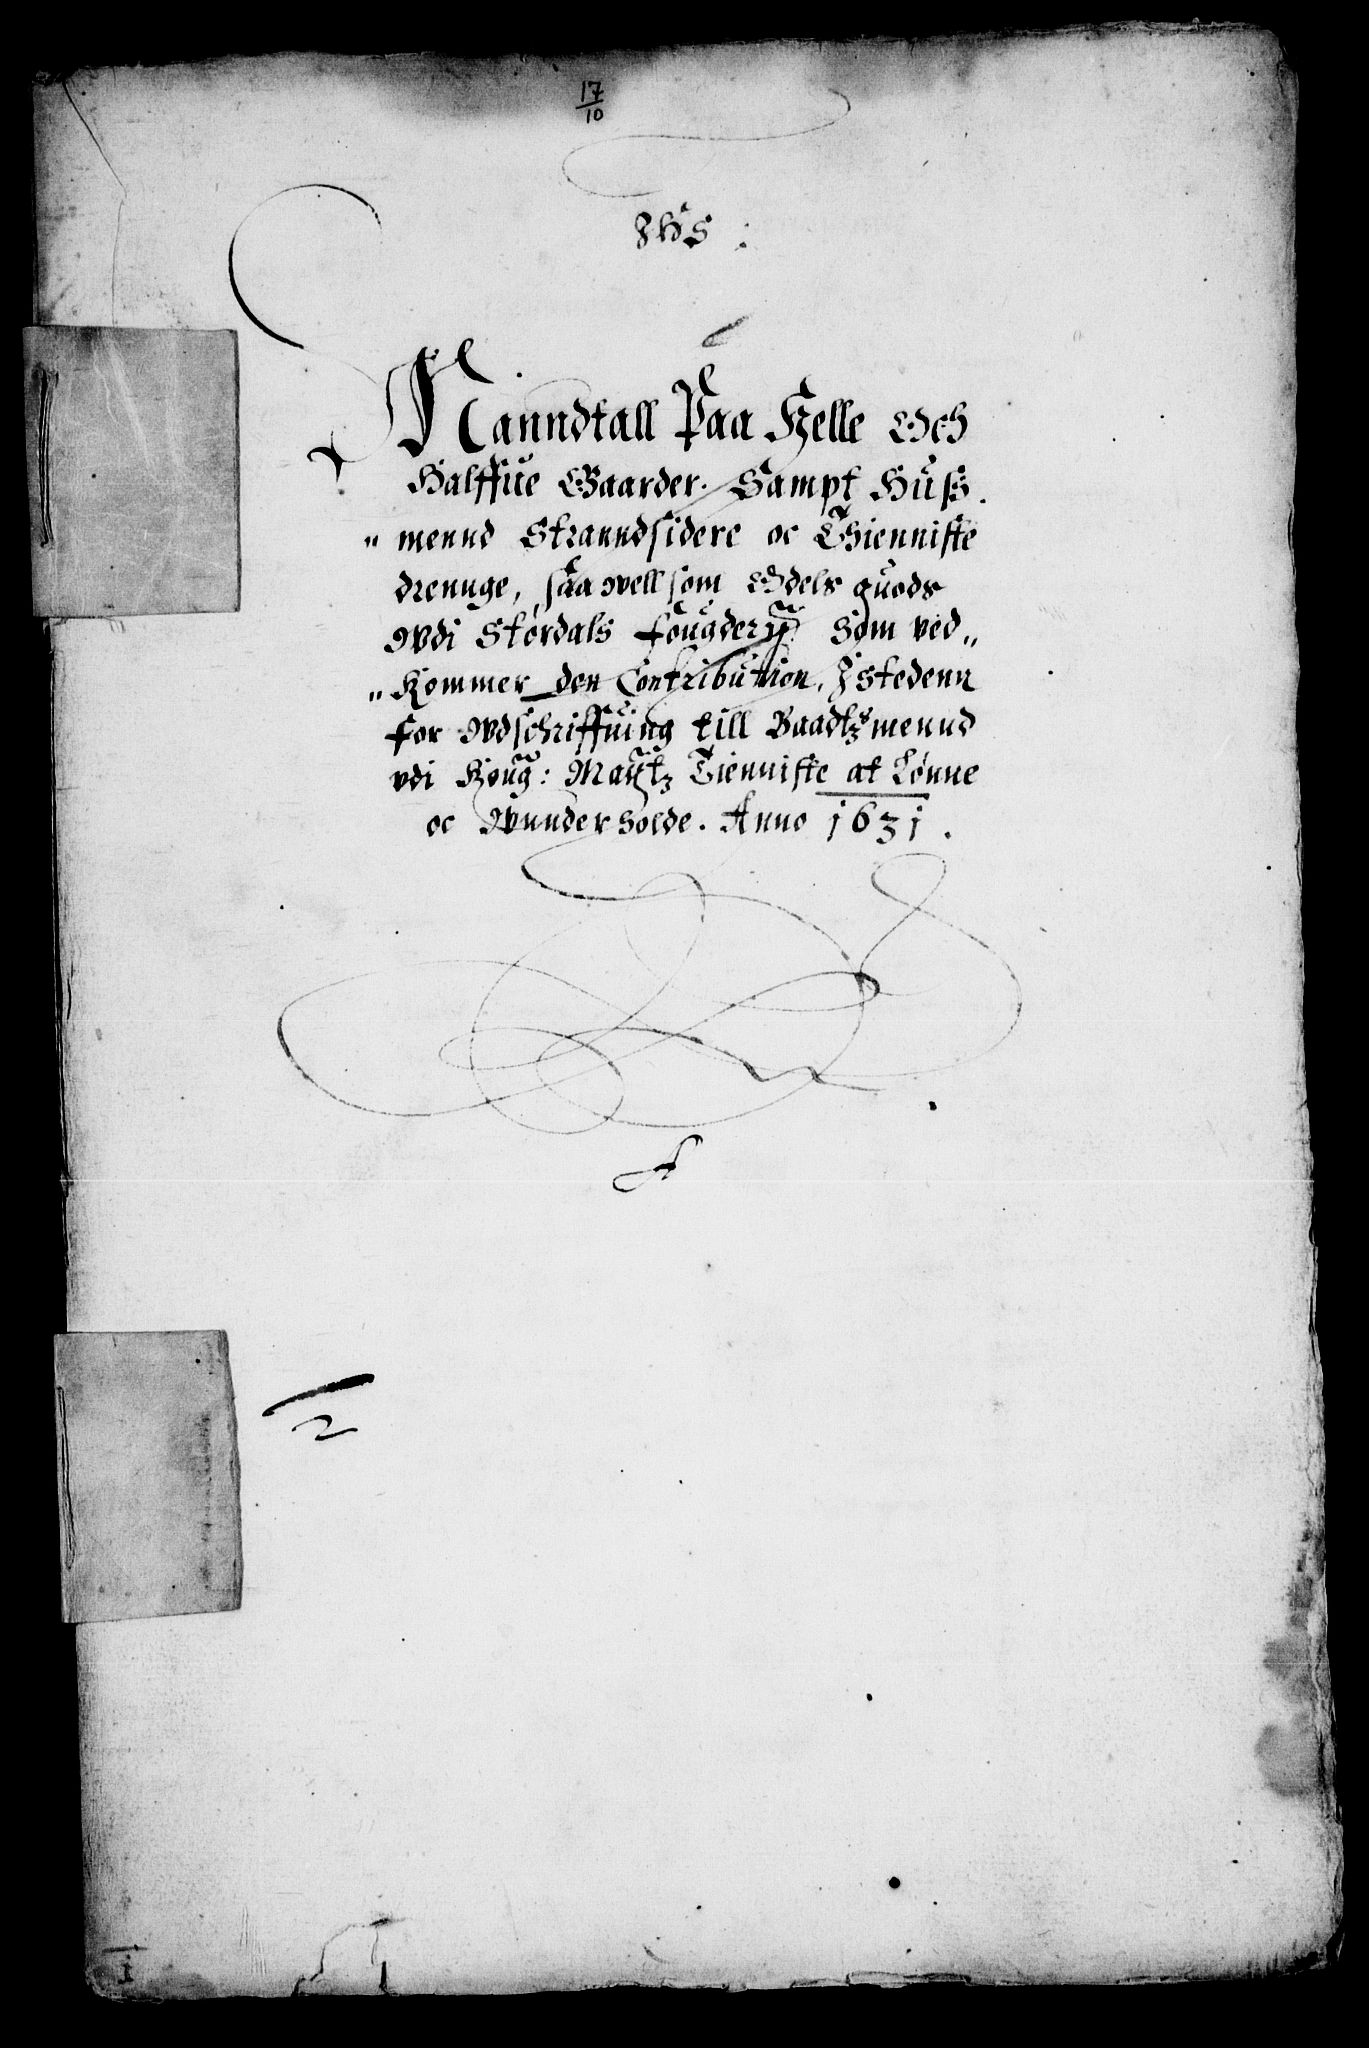 17
10
IHS :
Manndtall Paa Helle Och
Halffue Gaarder. Sampt Huss
„ mennd Stranndsidere oc Thienniste
drennge, saa well som Odels guods
Wdi Stordals fougderij som ved„
„ Kommer den Contribution, Istedenn
for Wdschriffuing till Baadtzmennd
vdi Kong: Maytz Tienniste at Lønne
oc Wnnderholde. Anno 1631.
A
12
1